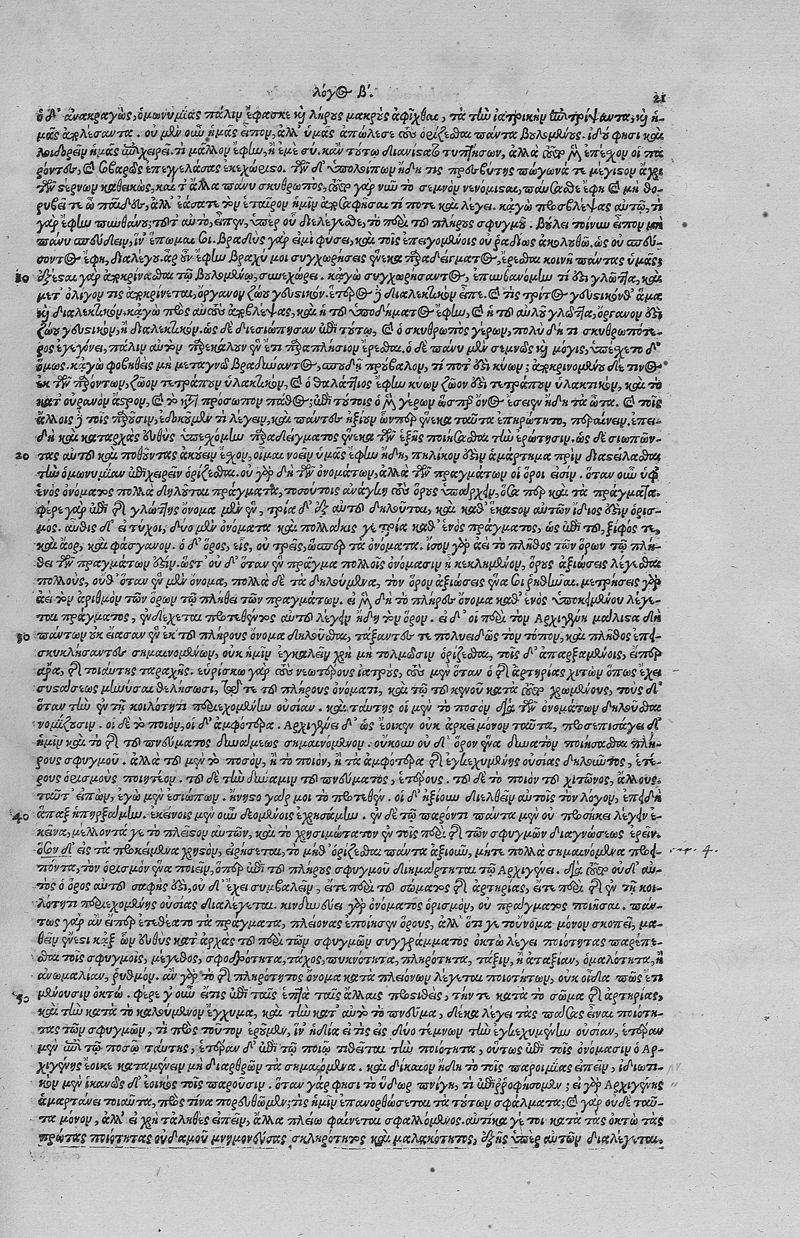 λόγος β′.
21
ὁ δ' ἀνακραγὼς, ὁμωνυμίας πάλιν ἔφασκε καὶ λήρους μακροὺς ἀφῖχθαι, τὰ τὴν ἰατρικὴν ἐπιτρίψαντα, καὶ ἡ-
μᾶς ἀπολέσαντα. οὐ μὲν οὖν ἡμᾶς εἶπον, ἀλλ' ὑμᾶς ἀπώλεσε τὸ ὁρίζεσθαι πάντα βουλομένους. ἰδού φησι καὶ
λοιδορεῖν ἡμᾶς ἐπιχειρεῖ. τί μᾶλλον ἔφην, ἢ ἐμὲ σύ. κἂν τούτῳ διανίσταται τυπτήσων, ἀλλὰ τοῦτο μὲν ἐπέχον οἱ πα
ρόντες, καὶ σοβαρῶς ἐπεγγελάσας ἐκεχώρισο. τῶν δ' ὑπολοίπων ἤδη τις πρεσβύτης πώγωνά τε μέγιστον ἄχρι
τῶν στέρνων καθεικὼς, καὶ τ' ἄλλα πάνυ σκυθρωπὸς, τοῦτο γὰρ νῦν τὸ σεμνὸν νενόμισται, παύσασθε ἔφη καὶ μὴ θο-
ρυβεῖτε ὦ παῖδες, ἀλλ' ἐάσατε τὸν ἑταῖρον ἡμῖν ἀποφῆσαι τί ποτε καὶ λέγει. κἀγὼ προσβλέψας αὐτῷ, τί
γὰρ ἔφην πυνθάνῃ; τοῦτ' αὐτὸ, εἶπεν, ὑπὲρ οὗ διελέγεσθε, τὸ περὶ τοῦ πλήρους σφυγμοῦ. βούλει τοίνυν εἶπον μὴ
πάνυ σπεύδειν, ἵν' ἕπωμαί σοι. βραδὺς γάρ εἰμι φύσει, καὶ τοῖς ἐπειγομένοις οὐ ῥᾳδίως ἀκολουθῶ. ὡς οὐ σπεύ-
σοντος ἔφη, διάλεγου. ἆρ' οὖν ἔφην βραχύ μοι συγχωρήσεις ἕνεκα παραδείγματος, ἔρεσθαι κοινῇ πάντας ὑμᾶς;
10 ἔξεστι γὰρ ἀποκρίνασθαι τῷ βουλομένῳ, συνεχώρει. κἀγὼ συγχωρήσαντος, ἐπυνθανόμην τί ἐστι γλῶττα, καὶ
μετ' ὀλίγον τὶς ἀποκρίνεται, ὄργανον ζώου γευστικόν. ἕτερος ἢ διαλεκτικὸν εἶπε. καὶ τὶς τρίτος γευστικόνθ' ἅμα
καὶ διαλεκτικόν. κἀγὼ πρὸς αὐτὸν ἀποβλέψας, καὶ ἡ τοῦ ὑποδήματος ἔφην, καὶ ἡ τοῦ αὐλοῦ γλῶττα, ὄργανόν ἐστι
ζώου γευστικὸν, ἢ διαλεκτικόν. ὡς δὲ διεσιώπησαν ἐπὶ τούτῳ, καὶ ὁ σκυθρωπὸς γέρων, πολὺ δή τι σκυθρωπότε-
ρος ἐγεγόνει, πάλιν αὐτὸν παρεκάλουν ἕν ἔτι παραπλήσιον ἔρεσθαι. ὁ δὲ πάνυ μὲν σεμνῶς καὶ μόγις, ὑπέσχετο δ'
ὅμως. κἀγὼ φοβηθεὶς μὴ μεταγνῷ βραδύναντος, σπουδῇ προὔβαλον, τί ποτ' ἐστὶ κύων; ἀποκρινομένου δέ τινος
ἐκ τῶν παρόντων, ζῶον τετράπουν ὑλακτικὸν, καὶ ὁ θαλάττιος ἔφην κύων ζῶόν ἐστι τετράπουν ὑλακτικὸν, καὶ τὸ
κατ' οὐρανὸν ἄστρον, καὶ τὸ κατὰ πρόσωπον πάθος; ἐπὶ τούτοις ὁ μὲν γέρων ὥσπερ ὄνος ἔσειεν ἤδη τὰ ὦτα. καὶ τοῖς
ἄλλοις δὲ τοῖς παροῦσιν, ἐδοκοῦμέν τι λέγειν, καὶ πάντες ἠξίουν ὧνπερ ἕνεκα ταῦτα ἐπηρώτητο, περαίνειν. ἐπει-
δὴ καὶ καταρχὰς εὐθὺς ὑπεσχόμην παραδείγματος ἕνεκα τῶν ἑξῆς ποιήσασθαι τὴν ἐρώτησιν. ὡς δὲ σιωπῶν-
20 τας αὐτοὺς καὶ ποθοῦντας ἀκούειν ἔχον, οἶμαι νοεῖν ὑμᾶς ἔφην ἤδη, πηλίκον ἐστὶν ἁμάρτημα πρὶν διαστείλασθαι
τὴν ὁμωνυμίαν ἐπιχειρεῖν ὁρίζεσθαι. οὐ γὰρ δὴ τῶν ὀνομάτων, ἀλλὰ τῶν πραγμάτων οἱ ὅροι εἰσίν. ὅταν οὖν ὑφ'
ἑνὸς ὀνόματος πολλὰ δηλοῦται πράγματα, τοσούτοις ἀνάγκη τοὺς ὅρους ὑπάρχειν, ὅσα περ καὶ τὰ πράγματα.
φέρε γὰρ ἐπὶ τῆς γλώττης ὄνομα μὲν ἕν, τρία δ' ἐξ αὐτοῦ δηλοῦται, καὶ καθ' ἕκαστον αὐτῶν ἴδιός ἐστιν ὁρισ-
μός. αὖθις δ' εἰ τύχοι, δύο μὲν ὀνόματα καὶ πολλάκις γε τρία καθ' ἑνὸς πράγματος, ὡς ἐπὶ τοῦ, ξίφος τε,
καὶ ἄορ, καὶ φάσγανον. ὁ δ' ὅρος, εἷς, οὐ τρεῖς, ὥσπερ τὰ ὀνόματα. ἴσον γὰρ ἀεὶ τὸ πλῆθος τῶν ὅρων τῷ πλή-
θει τῶν πραγμάτων ἐστίν. ὥστ' οὐ δ' ὅταν ἓν πρᾶγμα πολλοῖς ὀνόμασιν ᾖ κεκλημένον, ὅρους ἀξιώσεις λέγεσθαι
πολλοὺς, οὔθ' ὅταν ἓν μὲν ὄνομα, πολλὰ δὲ τὰ δηλούμενα, τὸν ὅρον ἀξιώσεις ἕνα σοι ῥηθῆναι. μετρήσεις γὰρ
ἀεὶ τὸν ἀριθμὸν τῶν ὅρων τῷ πλήθει τῶν πραγμάτων. εἰ μὲν δὴ τὸ πλῆρες ὄνομα καθ' ἑνὸς ὑποκειμένου λέγε-
ται πράγματος, ἐνδέχεται προτεθέντος αὐτοῦ λέγειν ἤδη τὸν ὅρον. εἰ δ' οἱ περὶ τὸν Ἀρχιγένη μάλιστα δὴ
30 πάντων οὐκ εἴασαν ἓν ἐκ τοῦ πλήρους ὄνομα δηλοῦσθαι, τάξαντός τε πολυειδῶς τὸν τόπον, καὶ πλῆθος ἐπει-
σκυκλήσαντος σημαινομένων, οὐκ ἡμῖν ἐγκαλεῖν χρὴ μὴ τολμῶσιν ὁρίζεσθαι, τοῖς δ' ἀπαρξαμένοις, εἴπερ
ἄρα, τῆς τοιαύτης ταραχῆς. εὑρίσκω γὰρ τοὺς νεωτέρους ἰατροὺς, τοὺς μὲν ὅταν ὁ τῆς ἀρτηρίας χιτὼν ὅπως ἔχει
συστάσεως μηνῦσαι θελήσωσι, τῷ τε τοῦ πλήρους ὀνόματι, καὶ τῷ τοῦ κενοῦ κατὰ τοῦτο χρωμένους, τοὺς δ'
ὅταν τὴν ἐν τῇ κοιλότητι περιεχομένην οὐσίαν. καὶ ταύτης οἱ μὲν τὸ ποσὸν διὰ τῶν ὀνομάτων δηλοῦσθαι
νομίζουσιν. οἱ δὲ τὸ ποιὸν, οἱ δ' ἀμφότερα. Ἀρχιγένει δ' ὡς ἔοικεν οὐκ ἀρκεῖ μόνον ταῦτα, προσεπισάγει δ'
ἡμῖν καὶ τὸ τῆς τοῦ πνεύματος δυνάμεως σημαινόμενον. οὔκουν οὐ δ' ὅρον ἕνα δυνατὸν ποιήσασθαι πλή-
ρους σφυγμοῦ. ἀλλὰ τοῦ μὲν τὸ ποσὸν, ἢ τὸ ποιὸν, ἢ τὰ ἀμφότερα τῆς ἐγκεχυμένης οὐσίας δηλοῦντος, ἑτέ-
ρους ὁρισμοὺς ποιητέον. τοῦ δὲ τὴν δύναμιν τοῦ πνεύματος, ἑτέρους. τοῦ δὲ τὸ ποιὸν τοῦ χιτῶνος, ἄλλους.
ταῦτ' εἰπὼν, ἐγὼ μὲν ἐσιώπων. ἤνυστο γάρ μοι τὸ προτεθέν. οἱ δ' ἠξίουν διελθεῖν αὐτοῖς τὸν λόγον, ἐπειδὴ
40 ἅπαξ ἠρξάμην. ἐκείνοις μὲν οὖν δεομένοις ἐχρησάμην. ἐν δὲ τῷ παρόντι πάντα μὲν οὐ προσῆκε λέγειν ἐ-
κεῖνα, μέλλοντά γε τὸ πλεῖστον αὐτῶν, καὶ τὸ χρησιμώτατον ἐν τοῖς περὶ τῆς τῶν σφυγμῶν διαγνώσεως ἐρεῖν.
ὅσον δ' εἰς τὰ προκείμενα χρηστὸν, εἰρήσεται, τὸ μήθ' ὁρίζεσθαι πάντα ἀξιοῦν, μήτε πολλὰ σημαινόμενα προσ-
πόντα, τὸν ὁρισμὸν ἕνα ποιεῖν, ὅπερ ἐπὶ τοῦ πλήρους σφυγμοῦ διημάρτηται τῷ Ἀρχιγένει. διὰ τοῦτο οὐδ' αὐ-
τὸς ὁ ὅρος αὐτοῦ σαφής ἐστι, οὐ δ' ἔχει συμβαλεῖν, εἴτε περὶ τοῦ σώματος τῆς ἀρτηρίας, εἴτε περὶ τῆς ἐν τῇ κοι-
λότητι περιεχομένης οὐσίας διαλέγεται. κινδυνεύει γὰρ ὀνόματος ὁρισμὸν, οὐ πράγματος ποιῆσαι. πάν-
τως γὰρ ἂν εἴπερ ἐτεθέατο τὰ πράγματα, πλείονας ἐποίησεν ὅρους, ἀλλ' ὅτι γε τοὔνομα μόνον σκοπεῖ, μα-
θεῖν ἔνεστι κἀξ ὧν εὐθὺς κατ' ἀρχὰς τοῦ περὶ τῶν σφυγμῶν συγγράμματος ὀκτὼ λέγει ποιότητας παρέπε-
σθαι τοῖς σφυγμοῖς, μέγεθος, σφοδρότητα, τάχος, πυκνότητα, πληρότητα, τάξιν, ἢ ἀταξίαν, ὁμαλότητα, ἢ
ἀνωμαλίαν, ῥυθμόν. ἂν γὰρ τὸ τῆς πληρότητος ὄνομα κατὰ πλειόνων λέγεται ποιοτήτων, οὐκ οἶδα πῶς ἔτι
50 μένουσιν ὀκτώ. φέρε γ' οὖν εἴ τις ἐπὶ ταῖς ἑπτὰ ταῖς ἄλλαις προσθεὶς, τήν τε κατὰ τὸ σῶμα τῆς ἀρτηρίας,
καὶ τὴν κατὰ τὸ καλούμενον ἔγχυμα, καὶ τὴν κατ' αὐτὸ τὸ πνεῦμα, δέκα λέγει τὰς πάσας εἶναι ποιότη-
τας τῶν σφυγμῶν, τί πρὸς τοῦτον ἐροῦμεν, ἵν' ἡδία εἴ τις εἰς δύο τέμνων τὴν ἐγκεχυμένην οὐσίαν, ἑτέραν
μὲν ἐπὶ τῷ ποσῷ ταύτης, ἑτέραν δ' ἐπὶ τῷ ποιῷ τίθεται τὴν ποιότητα, οὕτως ἐπὶ τοῖς ὀνόμασιν ὁ Ἀρ-
χιγένης ἔοικε καταμένειν μὴ διαρθρῶν τὰ σημαινόμενα. καὶ δίκαιον ἤδη τὸ τῆς παροιμίας εἰπεῖν, ἰδιωτι-
κὸν μὲν ἱκανῶς δ' ἐοικὸς τοῖς παροῦσιν. ὅταν γάρ φησι τὸ ὕδωρ πνίγῃ, τί ἐπιρροφήσομεν; εἰ γὰρ Ἀρχιγένης
ἁμαρτάνει τοιαῦτα, πρὸς τίνα πορευθῶμεν; τίς ἡμῖν ἐπανορθώσεται τὰ τούτων σφάλματα; καὶ γὰρ οὐδὲ ταῦ-
τα μόνον, ἀλλ' εἰ χρὴ τἀληθὲς εἰπεῖν, ἄλλα πλείω φαίνεται σφαλλόμενος. αὐτίκα γέ τοι κατὰ τὰς ὀκτὼ τὰς
πρώτας ποιότητας οὐδαμοῦ μνημονεύσας σκληρότητος καὶ μαλακότητος, ἑξῆς ὑπὲρ αὐτῶν διαλέγεται.